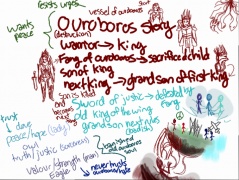 resists urges
vessel of ouroboros
Wants
peace
Ouroboros Story
(destruction)
warrior → king
Fang of ouroboros → sacrificed child
son of king
next king → grandson of first king
son is killed
and
becomes
next
Sword of justice → defeated by
fang
old king of the wing
grandson next
trust
dove
peace/hope (lady)
owl
with justice
Valour/strength (man)
Eagle
never trusts